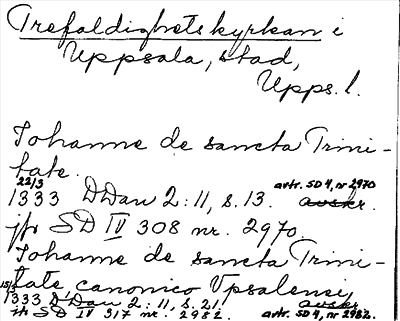 Trefaldighetskyrkan i
Uppsala, stad,
Upps. l.
Johanne de sancta Trini-
tate.
22/3 avtr. SD 4, nr 2970
1333 DDan 2:11, s. 13. avskr.
jfr SD IV 308 nr. 2970.
Johanne de sancta Trini-
tate canonico Upsalensi,
15/3 1333 D'Dan 2:11, s. 21. avskr.
jfr SD IV 317 nr. 2982. avtr. SD 4, nr 2982.